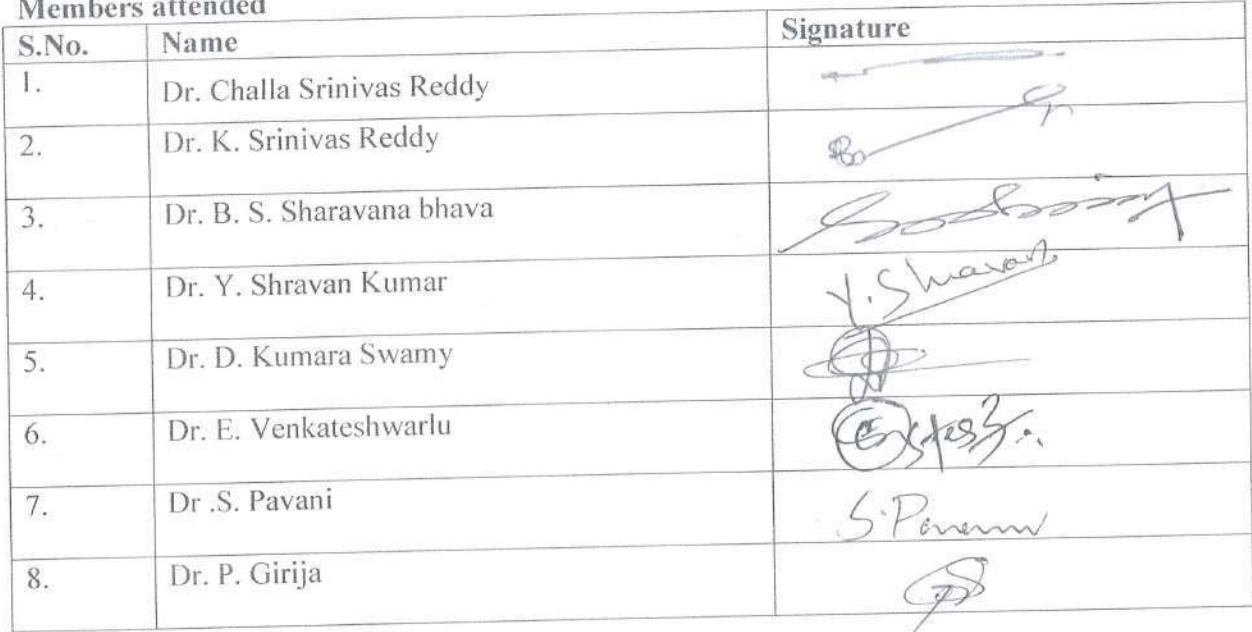 Members attended
S.No. Name Signature
1. Dr. Challa Srinivas Reddy
2. Dr. K. Srinivas Reddy
3. Dr. B. S. Sharavana bhava
4. Dr. Y. Shravan Kumar Y. Shravan
5. Dr. D. Kumara Swamy
6. Dr. E. Venkateshwarlu
7. Dr .S. Pavani S. Pavani
8. Dr. P. Girija